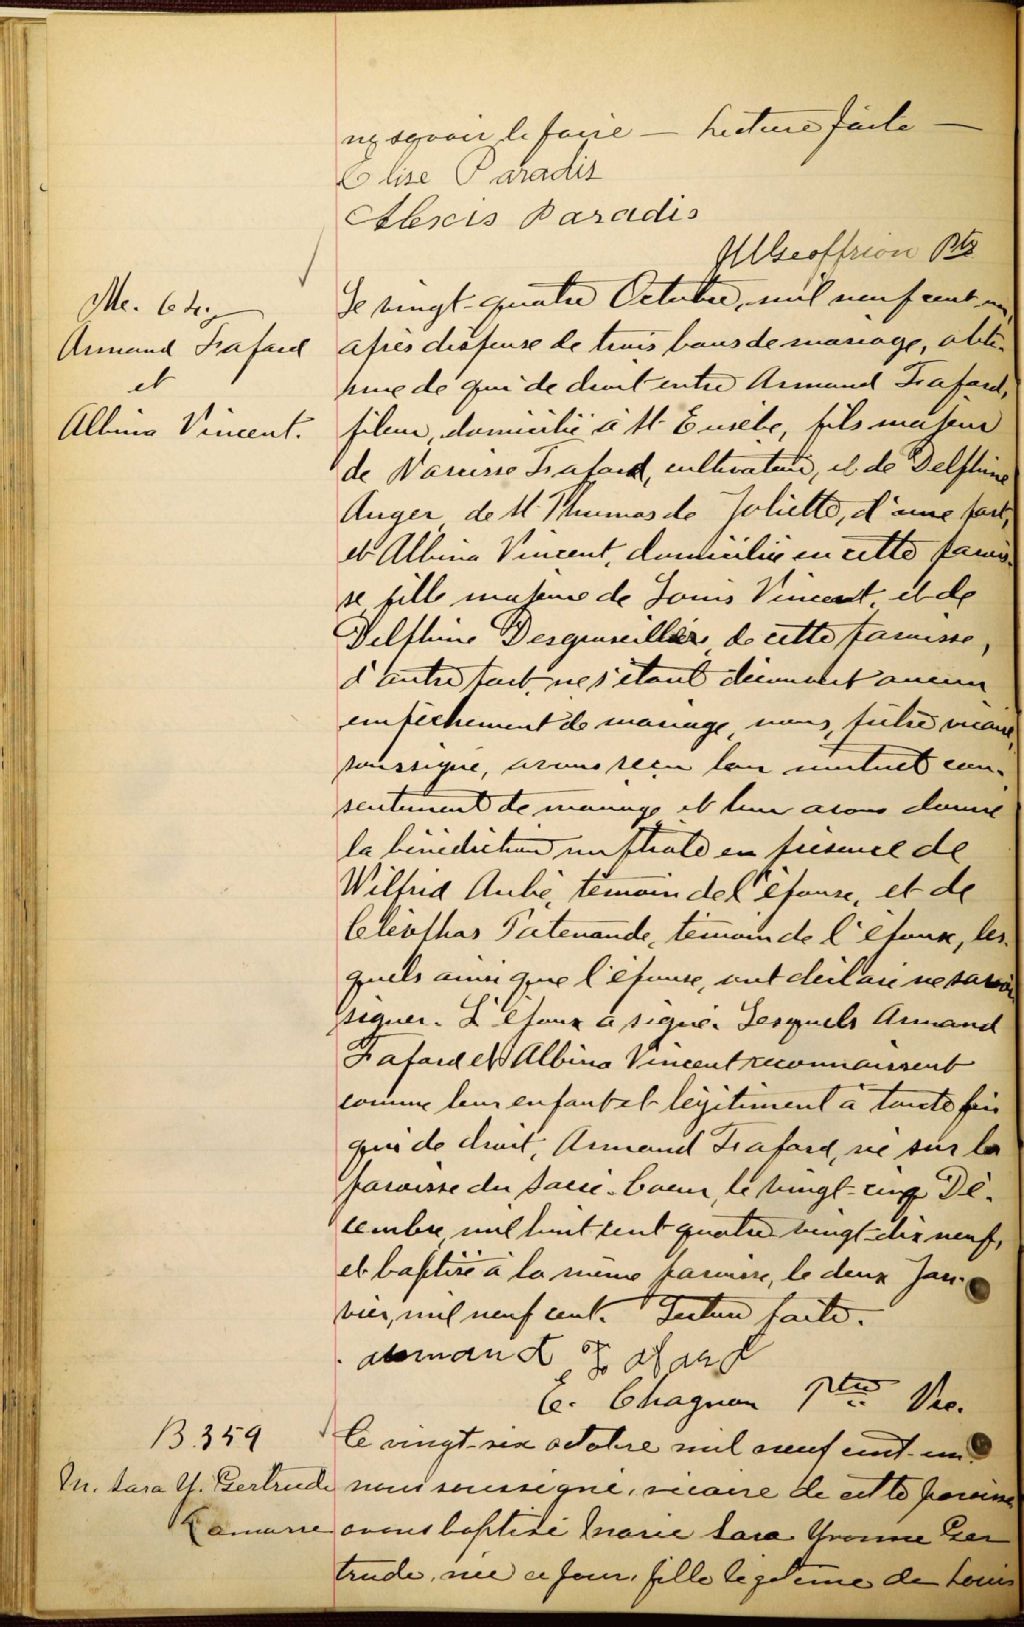 ne savoir le faire — Lecture faite —
Elise Paradis
Alexis Paradis
Geoffrion Ptr
Me. 64.
Armand Fafard
et
Albina Vincent.
Le vingt-quatre Octobre, mil neuf cent-un,
après dispense de trois bans de mariage, obte-
nue de qui de droit entre Armand Fafard,
fileur, domicilié à St Eusèbe, fils majeur
de Narcisse Fafard, cultivateur, et de Delphine
Auger, de St Thomas de Joliette, d'une part,
et Albina Vincent, domiciliée en cette parois-
se, fille majeure de Louis Vincent, et de
Delphine Desgroseillers, de cette paroisse,
d'autre part, ne s'étant découvert aucun
empêchement de mariage, nous, prêtre vicaire,
soussigné, avons reçu leur mutuel con-
sentement de mariage et leur avons donné
la bénédiction nuptiale en présence de
Wilfrid Aubé, témoin de l'épouse, et de
Cléophas Patenaude, témoin de l'époux, les-
quels ainsi que l'épouse, ont déclaré ne savoir
signer. L'époux a signé. Lesquels Armand
Fafard et Albina Vincent reconnaissent
comme leur enfant et légitiment à toute fin
qui de droit, Armand Fafard, né sur la
paroisse du Sacré-Coeur, le vingt-cinq Dé-
cembre, mil huit cent quatre vingt-dix neuf,
et baptisé à la même paroisse, le deux Jan-
vier, mil neuf cent. Lecture faite.
armand Fafard
E. Chagnon Ptre Vic.
B 359
M. Sara Y. Gertrude
Lamarre
Le vingt-six octobre mil neuf cent-un
nous soussigné, vicaire de cette paroisse
avons baptisé Marie Sara Yvonne Ger
trude, née ce jour, fille légitime de Louis